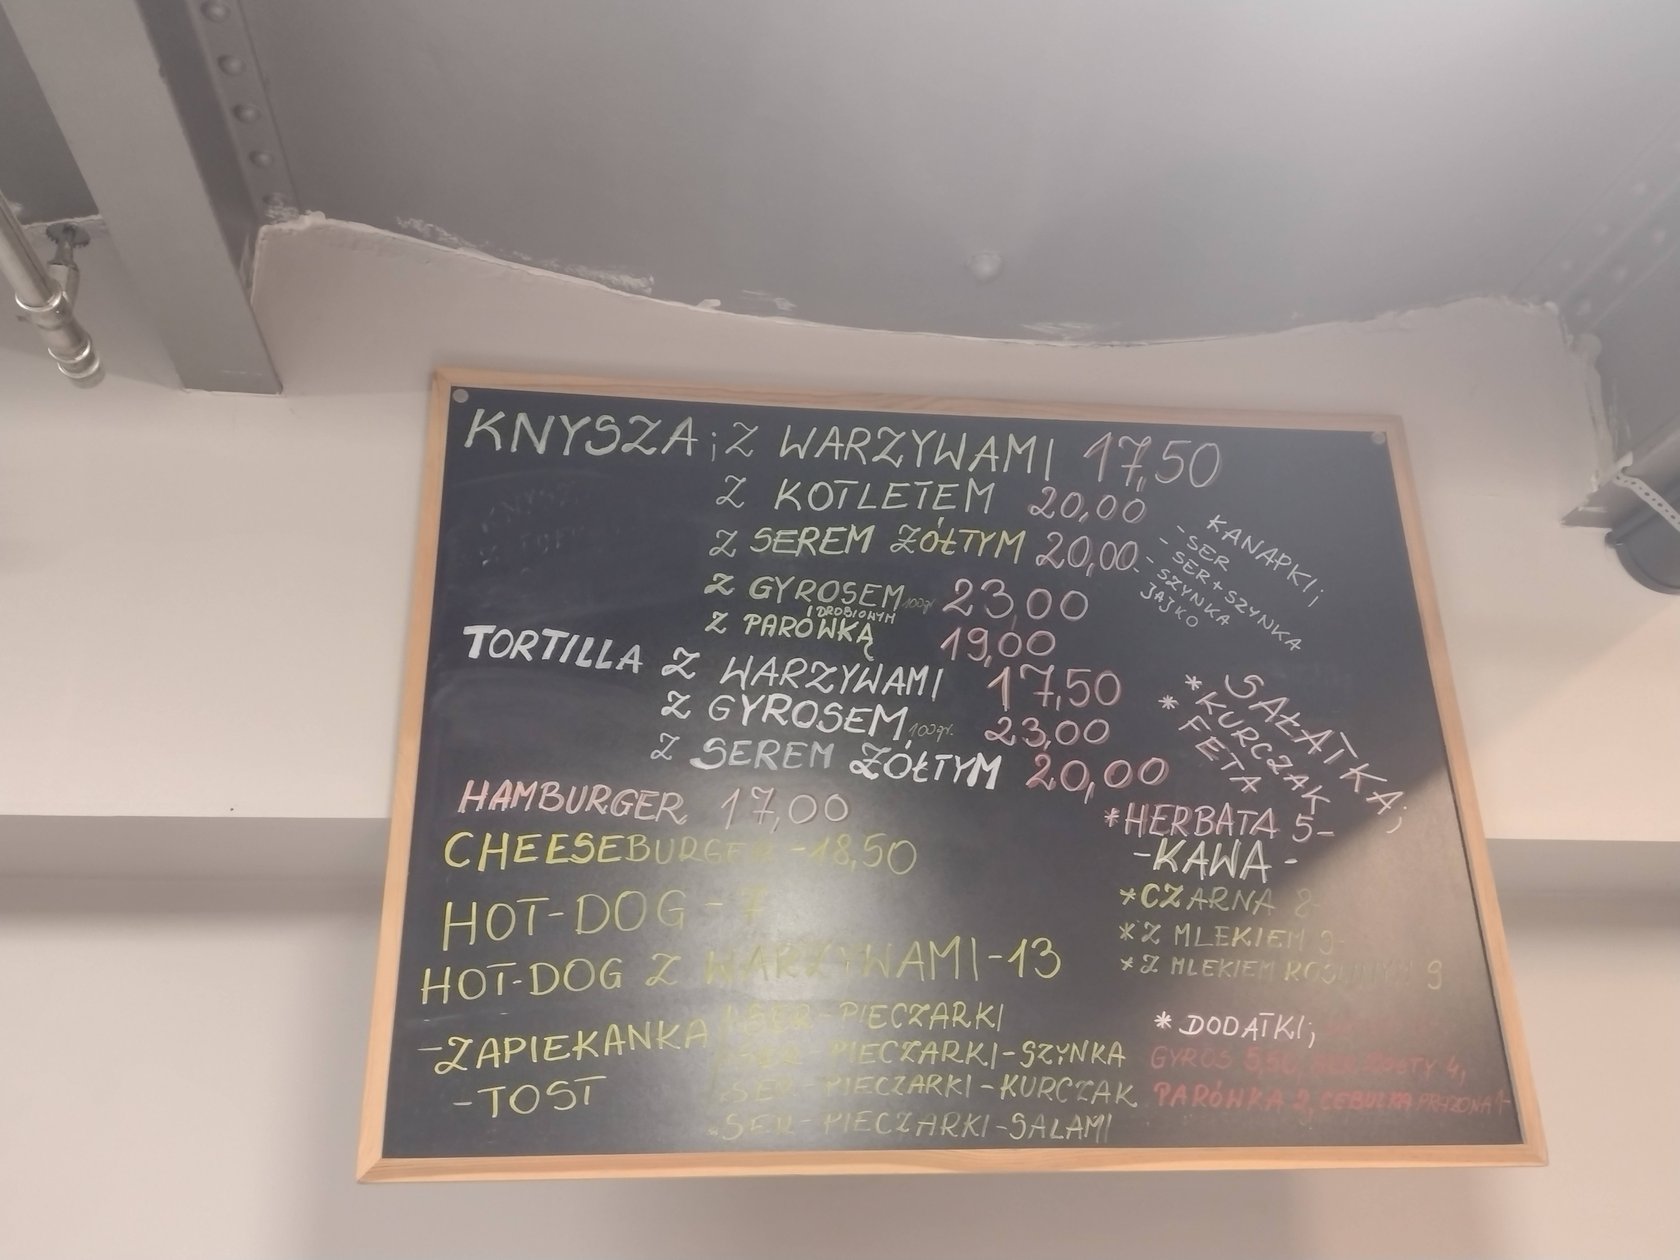 KNYSZA; Z WARZYWAMI 17,50
Z KOTLETEM 20,00
Z SEREM ŻÓŁTYM 20,00
Z GYROSEM 100gr. 23,00
DROBIOWYM
Z PARÓWKĄ 19,00
TORTILLA Z WARZYWAMI 17,50
Z GYROSEM, 100gr. 23,00
Z SEREM ŻÓŁTYM 20,00
HAMBURGER 17,00
CHEESEBURGER - 18,50
HOT-DOG - 7
HOT-DOG Z WARZYWAMI - 13
- ZAPIEKANKA
- TOST
SER - PIECZARKI
SER - PIECZARKI - SZYNKA
SER - PIECZARKI - KURCZAK
SER - PIECZARKI - SALAMI
KANAPKI;
- SER
- SER + SZYNKA
- SZYNKA
JAJKO
SAŁATKA;
* KURCZAK
* FETA
* HERBATA 5-
- KAWA -
* CZARNA 8-
* Z MLEKIEM 9-
* Z MLEKIEM ROŚLINNYM 9
* DODATKI;
GYROS 5,50, SER ŻÓŁTY 4,
PARÓWKA 2, CEBULKA PRAŻONA 1-